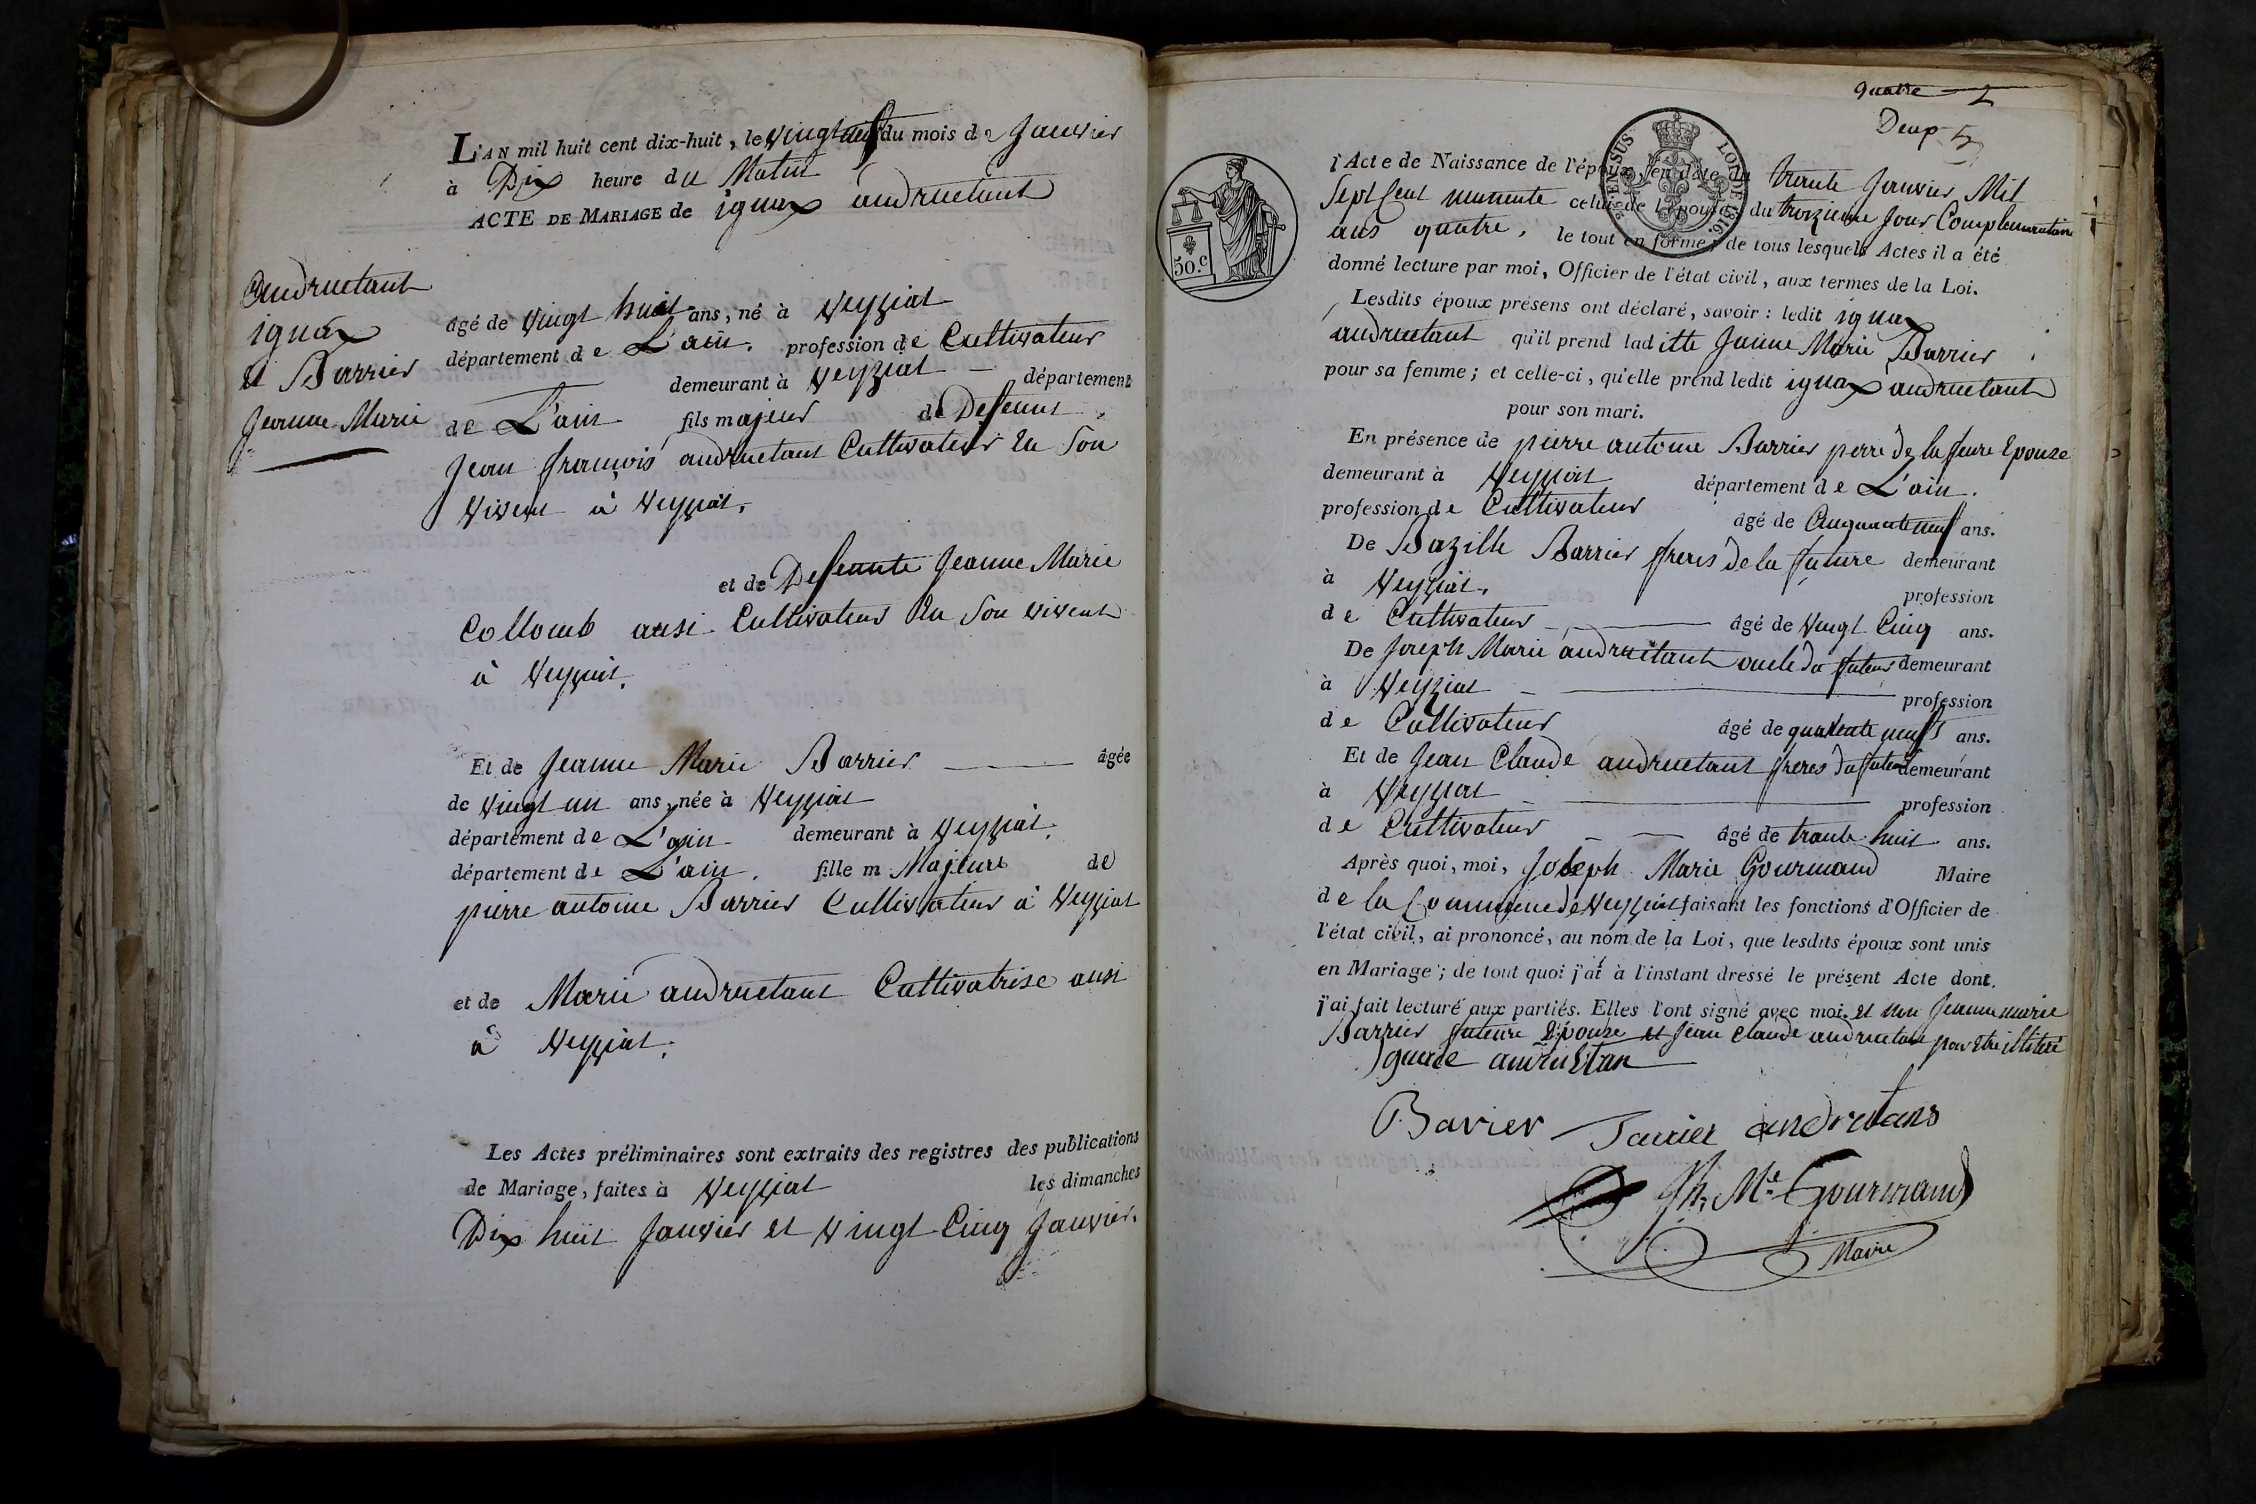 L'AN mil huit cent dix-huit, le vingt neuf du mois de Janvier
à Dix heure du Matin
ACTE DE MARIAGE de ignax andruetant
andruetant
ignax
et Barrier
Jeanne Marie
âgé de vingt huit ans, né à Veyziat
département de L'ain. profession de Cultivateur
demeurant à Veyziat département
de L'ain fils majeur de Defeunt
Jean françois andruetant Cultivateur En Son
vivent à Veyziat.
et de Defeunte Jeanne Marie
Collomb ausi Cultivateur En Son vivent
à Veyziat.
Et de Jeanne Marie Barrier âgée
de vingt un ans, née à Veyziat
département de L'ain demeurant à Veyziat.
département de L'ain. fille m Majeure de
pierre antoine Barrier Cultivateur à Veyziat
et de Marie andruetant Cultivatrise ausi
à Veyziat.
Les Actes préliminaires sont extraits des registres des publications
de Mariage, faites à Veyziat les dimanches
Dix huit Janvier et vingt Cinq Janvier.
quatre
Deux
50.c
LOI DE 1816.
l'Acte de Naissance de l'époux, en date du trante Janvier Mil
Sept Cent nonente celui de l'épouse du troizieme Jour Complementaire
ans quatre, le tout en forme; de tous lesquels Actes il a été
donné lecture par moi, Officier de l'état civil, aux termes de la Loi.
Lesdits époux présens ont déclaré, savoir: ledit ignax
andruetant qu'il prend laditte Jeanne Marie Barrier
pour sa femme; et celle-ci, qu'elle prend ledit ignax andruetant
pour son mari.
En présence de pierre antoine Barrier perre de la feure Epouze
demeurant à Veyziat département de L'ain.
profession de Cultivateur âgé de Cinquante neuf ans.
De Bazille Barrier freres de la future demeurant
à Veyziat. profession
de Cultivateur âgé de vingt Cinq ans.
De Joseph Marie andruetant oncle du futeur demeurant
à Veyziat profession
de Cultivateur âgé de quarente neuf ans.
Et de Jean Claude andruetant freres du futeur demeurant
à Veyziat profession
de Cultivateur âgé de trante huit ans.
Après quoi, moi, Joseph Marie Gourmand Maire
de la Commune de Veyziat faisant les fonctions d'Officier de
l'état civil, ai prononcé, au nom de la Loi, que lesdits époux sont unis
en Mariage; de tout quoi j'ai à l'instant dressé le présent Acte dont
j'ai fait lecture aux parties. Elles l'ont signé avec moi. et non Jeanne marie
Barrier future Epouze et Jean Claude andruetant pour Etre illiteré
Barier
andrutans
Jh. Me. Gourmand
Maire